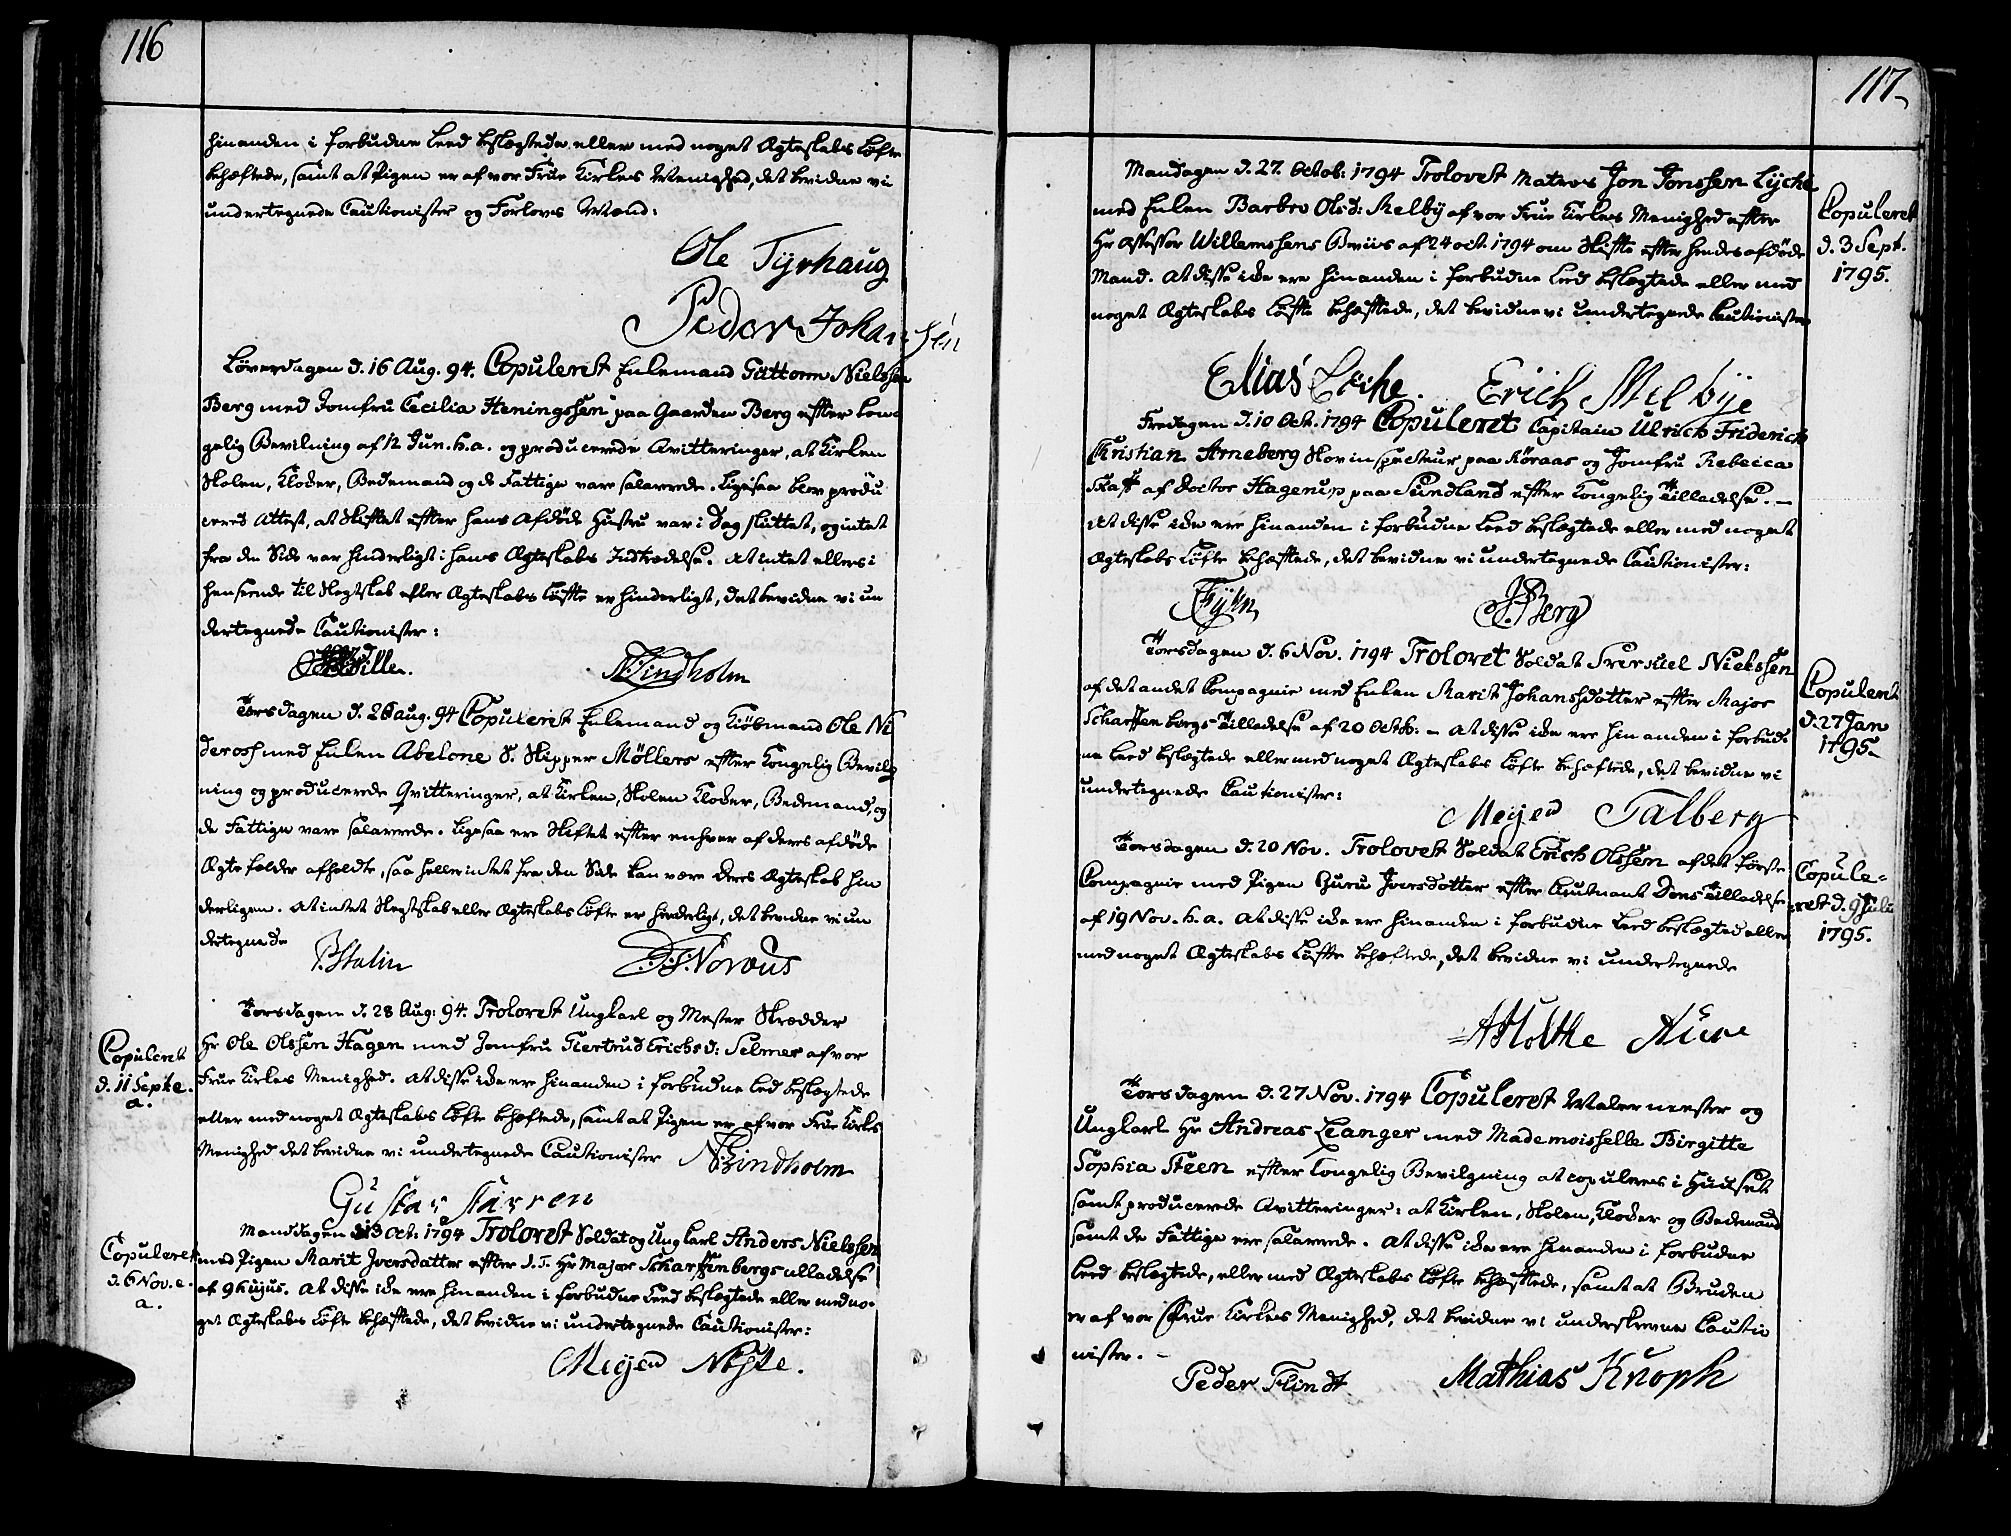 116
hinanden i forbudne Leed beslægtede eller med noget Ægteskabs Løfte
behæftede, samt at Pigen er af vor Frue Kirkes Menighed, det bevidne vi
undertegnede Cautionister og Forlovs Mænd:
Ole Tyrhaug
Peder Johansen
Løverdagen d. 16 Aug. 94. Copuleret Enkemand Guttorm Nielssen
Berg med Jomfru Cecilia Heningssen paa Gaarden Berg effter kon
gelig Bevilning af 12 Jun. h. a. og producerede Qvitteringer, at Kirken
Skolen, Klocker, Bedemand og de Fattige vare salarerede. Ligesaa blev produ
ceret Attest, at Skiftet effter hans Afdøde Hustru var i Dag sluttet, og intet
fra den Side var hinderligt i hans Ægteskabs Indtrædelse. At intet ellers i
henseende til Slegtskab eller Ægteskabs Løffte er hinderligt, det bevidne vi un
dertegnede Cautionister:
Lindholm
Torsdagen d. 28 Aug. 94 Copuleret Enkemand og Kiøbmand Ole Ni
deros med Enken Abelone S. Skipper Möllers effter Kongelig Bevil
ning og producerede Qvitteringer, at Kirken, Skolen Klocker, Bedemand, og
de Fattige vare salarerede. Ligesaa ere Skiftet effter enhver af deres afdøde
Ægtefolder afholdte, saa heller intet fra den Side kan være deres Ægteskab hin
derligen. At intet Slegtskab eller Ægteskabs Løfte er hinderligt, det bevidne vi un
dertegnede
P. Stalin
Torsdagen d. 28 Aug: 94. Trolovet Ungkarl og Mester Skrædder
Hr Ole Olssen Hagen med Jomfru Giertrud Erichsd: Selmer af vor
Frue Kirkes Menighed. At disse icke ere hinanden i forbudne Led beslægtede
eller med noget Ægteskabs Løfte behæftede, samt at Pigen er af vor Frue Kirkes
Menighed det bevidne vi undertegnede Cautionister
Lindholm
Copuleret
d. 11 Sept e.
a.
Mandagen d. 13 Oct. 1794 Trolovet Soldat og Ungkarl Anders Nielssen
med Pigen Marit Iversdatter effter S. T. Hr Major Scharffenbergs tilladelse
af 9 hujus. At disse icke ere hinanden i forbudne Leed beslægtede eller med no-
get Ægteskabs Løfte behæfftede, det bevidne vi undertegnede Cautionister:
Meyer
Copuleret
d. 6 Nov. e.
a.
117
Mandagen d. 27. Octob: 1794 Trolovet Matros Jon Jonssen Lyche
med Enken Barbro Olsd: Melby af vor Frue Kirkes Menighed effter
Hr Assessor Willemssens Beviis af 24 oct. 1794 om Skiffte effter hendes afdøde
Mand. At disse icke ere hinanden i forbudne Leed beslægtede eller med
noget Ægteskabs Løffte behæfftede, det bevidne vi undertegnede Cautionister
Elias Löche. Erich Melbye
Copuleret
d. 3 Sept.
1795.
Fredagen d. 10 Oct. 1794 Copuleret Capitain Ulrich Friderich
Kristian Arneberg Skovinspecteur paa Røraas og Jomfru Rebecca
af Doctor Hagerup paa Sundland effter Kongelig Tilladelse. —
At disse icke ere hinanden i forbudne Leed beslægtede eller med noget
Ægteskabs Løfte behæfftede, det bevidne vi undertegnede Cautionister:
Berg
Torsdagen d. 6 Nov. 1794 Trolovet Soldat Nielssen
af det andet Compagnie med Enken Marit Johansdotter effter Major
Scharffenbergs Tilladelse af 20 Octob: — At disse icke ere hinanden i forbud
ne Leed beslægtede eller med noget Ægteskabs Løfte behæftede, det bevidne vi
undertegnede Cautionister:
Meyer Talberg
Copuleret
d. 27 Jan
1795.
Torsdagen d. 20 Nov. Trolovet Soldat Erich Olssen af det første
Compagnie med Pigen Guru Iversdotter effter Lieutnant Dons Tilladelse
af 19 Nov. h. a. At disse icke ere hinanden i forbudne Leed beslægted eller
med noget Ægteskabs Løffte behæftede, det bevidne vi undertegnede
Copule-
ret d. 9 Juli
1795.
Torsdagen d. 27 Nov. 1794 Copuleret Malermester og
Ungkarl Hr Andreas Leanger med Mademoisselle Birgitte
Sophia Steen effter kongelig Bevilgning at copuleres i Huuset
samt producerede Qvitteringer: at Kirken, Skolen, Klocker og Bedemand
samt de Fattige ere salarerede. At disse icke ere hinanden i forbudne
Leed beslægtede, eller med Ægteskabs Løfte behæfftede, samt at Bruden
er af vor Frue Kirkes Menighed, det bevidne vi underskrevne Cautio
nister. —
Peder Flindt Mathias Knoph